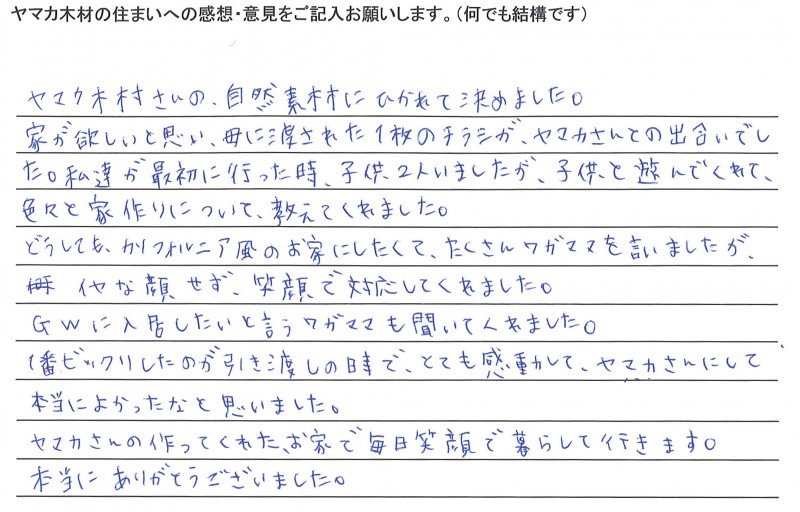 ヤマカ木材の住まいへの感想・意見をご記入お願いします。（何でも結構です）
ヤマカ木材さんの、自然素材にひかれて決めました。
家が欲しいと思い、母に渡された1枚のチラシが、ヤマカさんとの出合いでし
た。私達が最初に行った時、子供2人いましたが、子供と遊んでくれて、
色々と家作りについて、教えてくれました。
どうしても、カリフォルニア風のお家にしたくて、たくさんワガママを言いましたが、
イヤな顔せず、笑顔で対応してくれました。
GWに入居したいと言うワガママも聞いてくれました。
1番ビックリしたのが引き渡しの時で、とても感動して、ヤマカさんにして
本当によかったなと思いました。
ヤマカさんの作ってくれた、お家で毎日笑顔で暮らして行きます。
本当にありがとうございました。